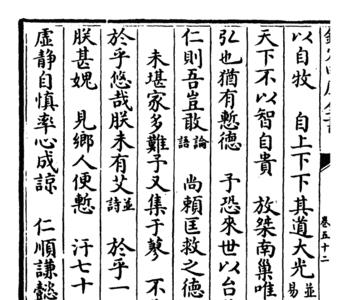 卷五十二
以自牧　自上下下其道大光易並
天下不以智自貴　放桀南巢唯
弘也猶有慙德　予恐來世以台
仁則吾豈敢論語　尚賴匡救之德
未堪家多難予又集于蓼　不
於乎悠哉朕未有艾並詩　於乎一
朕甚媿　見鄉人便慙　汗七十
虛靜自慎率心成諒　仁順謙懿